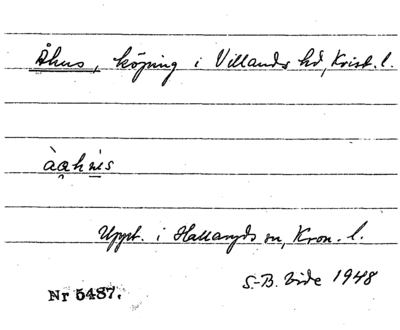 Åhus, köping i Villands hd, Krist. l.
àa̯hu̠s
Uppt. i Hallaryds sn, Kron. l.
S.-B. Vide 1948
Nr 5487.